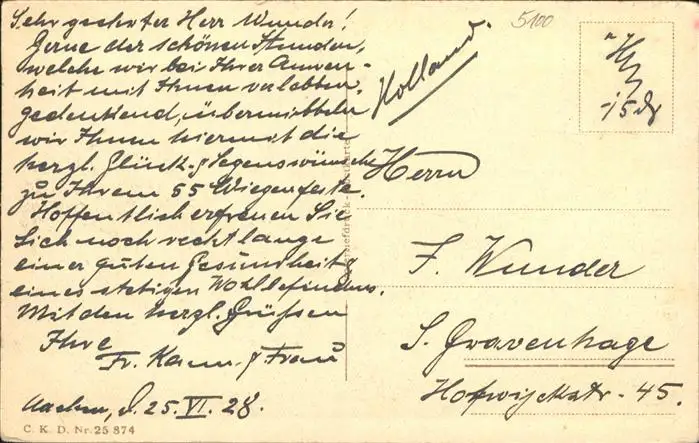 Sehr geehrter Herr Wunder!
Gerne der schönen Stunden,
welche wir bei Ihrer Anwesen-
heit mit Ihnen verlebten,
gedenkend, übermitteln
wir Ihnen hiermit die
herzl. Glück- & Segenswünsche
zu Ihrem 55 Wiegenfeste.
Hoffentlich erfreuen Sie
sich noch recht lange
einer guten Gesundheit &
eines stetigen Wohlbefindens.
Mit den herzl. Grüssen
Ihre
Fr. Kamm. & Frau
Aachen, d. 25. VI. 28.
C. K. D. Nr. 25 874
5100
Holland.
-15
Herrn
F. Wunder
S. Gravenhage
Hofwijckstr. - 45.